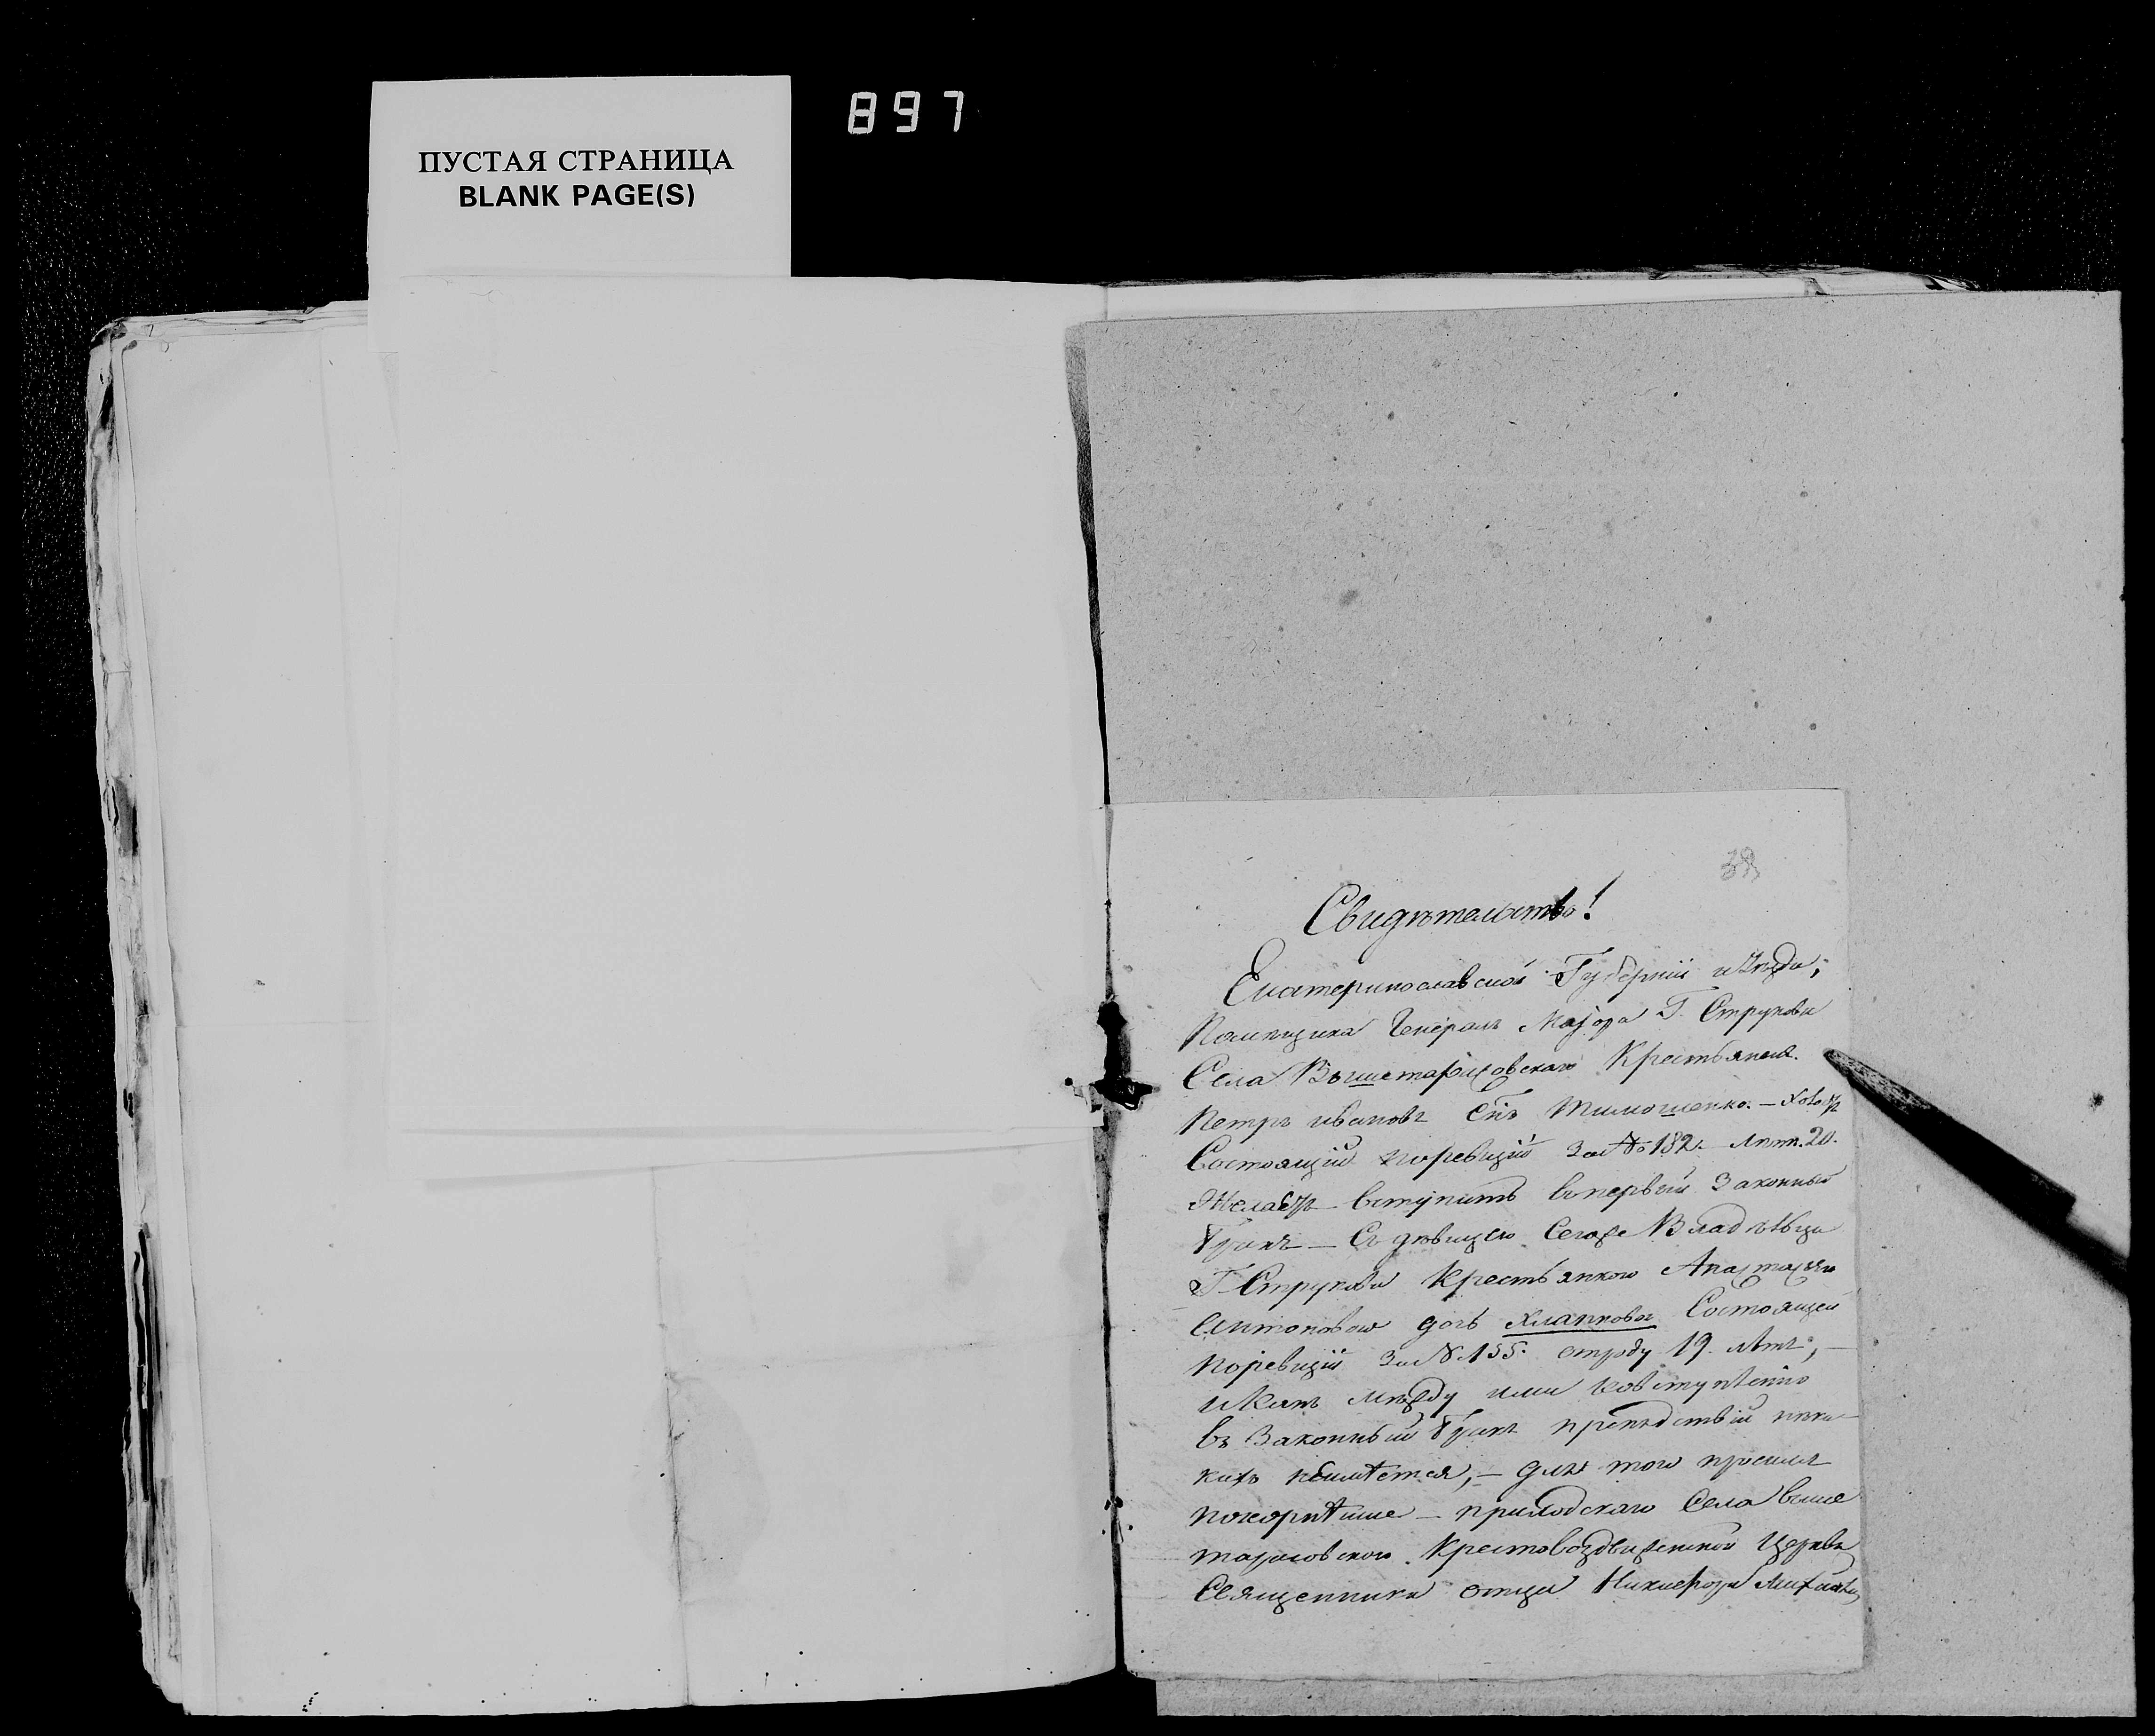 897
ПУСТАЯ СТРАНИЦА
BLANK PAGE(S)
39
Свидѣтельство!
Екатеринославской Губерніи и Уѣзда;
Помѣщика Генералъ Маіора Г. Струкова
Села Вышетарасовскаго Крестьянинъ
Петръ Ивановъ Снъ Тимошенко. — холостъ
Состоящій поревизіи За №182. Лѣтъ. 20.
Желаетъ вступить въ первый Законный
бракъ — Съ дѣвицею Сегоже Владѣльца
Г. Струкова Крестьянкою Анастасіею
Антоновою дочь Хлапкова Состоящей
поревизіи За №155. отроду 19. лѣтъ; —
и какъ между ими ковступленію
въ Законный бракъ препядствій ника-
кихъ неимѣется, — для того просимъ
покорнѣише — приходскаго Села выше
тарасовского Крестовоздвиженской Церкви
Священника отца Никифора